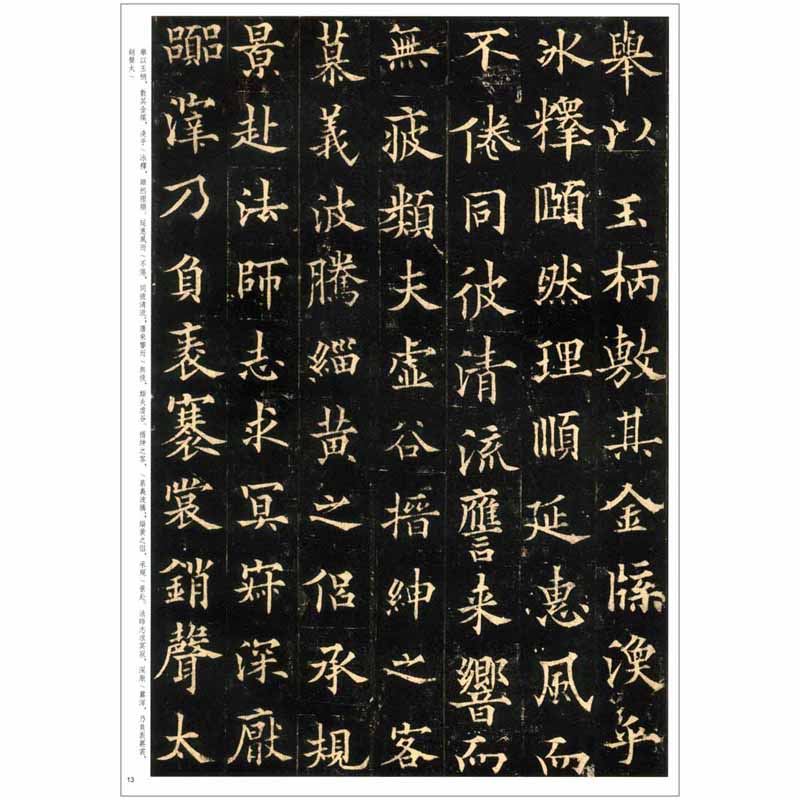 舉以玉柄敷其金牒渙乎
冰釋頤然理順延惠風而
不倦同彼清流譍来響而
無疲類夫虛谷搢紳之客
慕義波騰緇黄之侣承規
景赴法師志求冥寂深厭
囂滓乃負袠褰裳銷聲太
舉以玉柄，敷其金牒，渙乎／冰釋，頤然理順。延惠風而／不倦，同彼清流；譍来響而／無疲，類夫虛谷。搢紳之客，／慕義波騰；緇黄之侣，承規／景赴。法師志求冥寂，深厭／囂滓，乃負袠褰裳，
銷聲太／
13